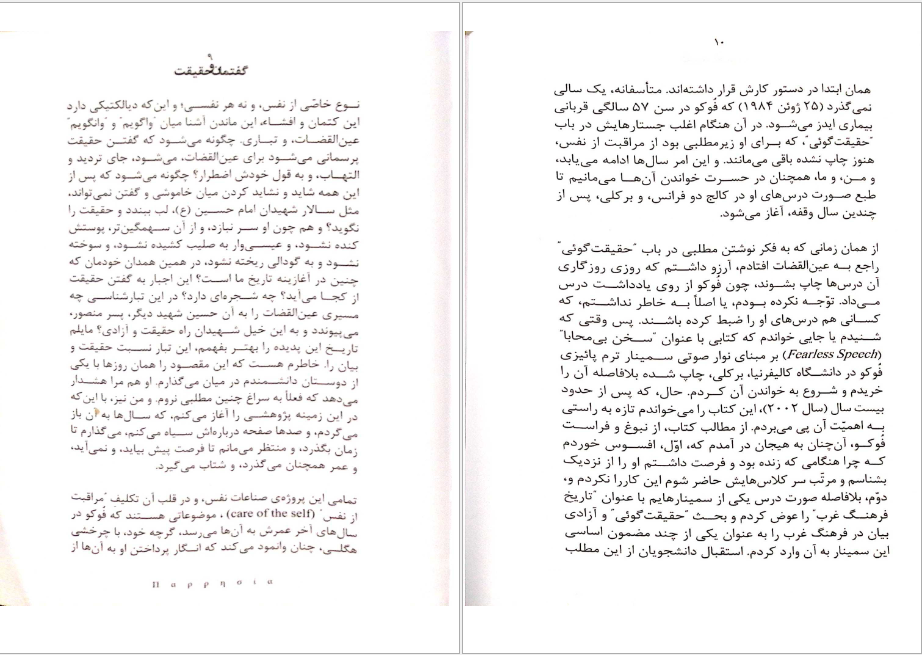 ۹
گفتمان حقیقت
نوع خاصّی از نفس، و نه هر نفسی؛ و این‌که دیالکتیکی دارد
این کتمان و افشاء، این ماندن آشنا میان "واگویم" و "وانگویم"
عین‌القضات، و تباری. چگونه می‌شود که گفتن حقیقت
پرسمانی می‌شود برای عین‌القضات، می‌شود، جای تردید و
التهاب، و به قول خودش اضطرار؟ چگونه می‌شود که پس از
این همه شاید و نشاید کردن میان خاموشی و گفتن نمی‌تواند،
مثل سالار شهیدان امام حسین (ع)، لب ببندد و حقیقت را
نگوید؟ و هم چون او سر نبازد، و از آن سهمگین‌تر، پوستش
کنده نشود، و عیسی‌وار به صلیب کشیده نشود، و سوخته
نشود و به گودالی ریخته نشود، در همین همدان خودمان که
چنین در آغازینه تاریخ ما است؟ این اجبار به گفتن حقیقت
از کجا می‌آید؟ چه شجره‌ای دارد؟ در این تبارشناسی چه
مسیری عین‌القضات را به آن حسین شهید دیگر، پسر منصور،
می‌پیوندد و به این خیل شهیدان راه حقیقت و آزادی؟ مایلم
تاریخ این پدیده را بهتر بفهمم، این تبار نسبت حقیقت و
بیان را. خاطرم هست که این مقصود را همان روزها با یکی
از دوستان دانشمندم در میان می‌گذارم. او هم مرا هشدار
می‌دهد که فعلاً به سراغ چنین مطلبی نروم. و من نیز، با این‌که
در این زمینه پژوهشی را آغاز می‌کنم، که سال‌ها به آن باز
می‌گردم، و صدها صفحه درباره‌اش سیاه می‌کنم، می‌گذارم تا
زمان بگذرد، و منتظر می‌مانم تا فرصت پیش بیاید، و نمی‌آید،
و عمر همچنان می‌گذرد، و شتاب می‌گیرد.
تمامی این پروژه‌ی صناعات نفس، و در قلب آن تکلیف "مراقبت
از نفس" (care of the self) ، موضوعاتی هستند که فُوکو در
سال‌های آخر عمرش به آن‌ها می‌رسد، گرچه خود، با چرخشی
هگلی، چنان وانمود می‌کند که انگار پرداختن او به آن‌ها از
Π α ρ ρ η σ ί α
۱۰
همان ابتدا در دستور کارش قرار داشته‌اند. متأسفانه، یک سالی
نمی‌گذرد (۲۵ ژوئن ۱۹۸۴) که فُوکو در سن ۵۷ سالگی قربانی
بیماری ایدز می‌شود. در آن هنگام اغلب جستارهایش در باب
"حقیقت‌گوئی"، که برای او زیرمطلبی بود از مراقبت از نفس،
هنوز چاپ نشده باقی می‌مانند. و این امر سال‌ها ادامه می‌یابد،
و من، و ما، همچنان در حسرت خواندن آن‌ها می‌مانیم تا
طبع صورت درس‌های او در کالج دو فرانس، و برکلی، پس از
چندین سال وقفه، آغاز می‌شود.
از همان زمانی که به فکر نوشتن مطلبی در باب "حقیقت‌گوئی"
راجع به عین‌القضات افتادم، آرزو داشتم که روزی روزگاری
آن درس‌ها چاپ بشوند، چون فُوکو از روی یادداشت درس
می‌داد. توّجه نکرده بودم، یا اصلاً به خاطر نداشتم، که
کسانی هم درس‌های او را ضبط کرده باشند. پس وقتی که
شنیدم یا جایی خواندم که کتابی با عنوان "سخن بی‌محابا"
(Fearless Speech) بر مبنای نوار صوتی سمینار ترم پائیزی
فُوکو در دانشگاه کالیفرنیا، برکلی، چاپ شده بلافاصله آن را
خریدم و شروع به خواندن آن کردم. حال، که پس از حدود
بیست سال (سال ۲۰۰۲)، این کتاب را می‌خواندم تازه به راستی
به اهمیّت آن پی می‌بردم. از مطالب کتاب، از نبوغ و فراست
فُوکو، آن‌چنان به هیجان در آمدم که، اوّل، افسوس خوردم
که چرا هنگامی که زنده بود و فرصت داشتم او را از نزدیک
بشناسم و مرتّب سر کلاس‌هایش حاضر شوم این کاررا نکردم و،
دوّم، بلافاصله صورت درس یکی از سمینارهایم با عنوان "تاریخ
فرهنگ غرب" را عوض کردم و بحث "حقیقت‌گوئی" و آزادی
بیان در فرهنگ غرب را به عنوان یکی از چند مضمون اساسی
این سمینار به آن وارد کردم. استقبال دانشجویان از این مطلب